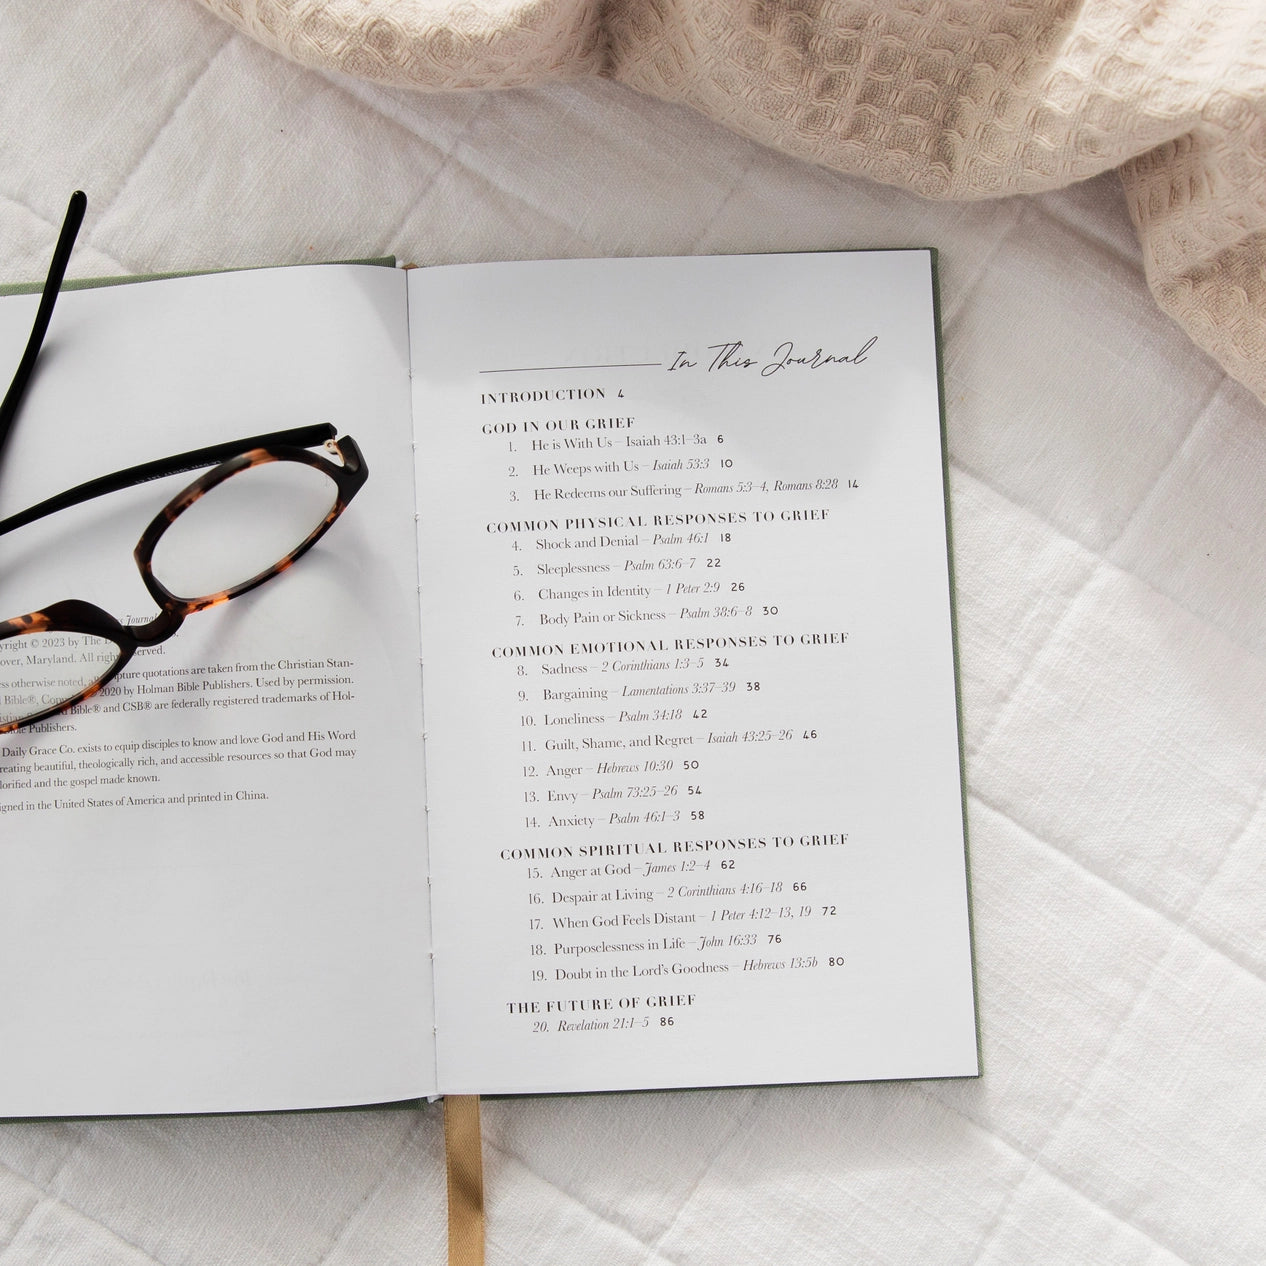 Journal
yright © 2023 by The D
over, Maryland. All rights reserved.
ss otherwise noted, all Scripture quotations are taken from the Christian Stan-
d Bible®, Copyright 2020 by Holman Bible Publishers. Used by permission.
istian Standard Bible® and CSB® are federally registered trademarks of Hol-
Bible Publishers.
Daily Grace Co. exists to equip disciples to know and love God and His Word
reating beautiful, theologically rich, and accessible resources so that God may
lorified and the gospel made known.
igned in the United States of America and printed in China.
In This Journal
INTRODUCTION 4
GOD IN OUR GRIEF
1. He is With Us – Isaiah 43:1–3a 6
2. He Weeps with Us – Isaiah 53:3 10
3. He Redeems our Suffering – Romans 5:3–4, Romans 8:28 14
COMMON PHYSICAL RESPONSES TO GRIEF
4. Shock and Denial – Psalm 46:1 18
5. Sleeplessness – Psalm 63:6–7 22
6. Changes in Identity – 1 Peter 2:9 26
7. Body Pain or Sickness – Psalm 38:6–8 30
COMMON EMOTIONAL RESPONSES TO GRIEF
8. Sadness – 2 Corinthians 1:3–5 34
9. Bargaining – Lamentations 3:37–39 38
10. Loneliness – Psalm 34:18 42
11. Guilt, Shame, and Regret – Isaiah 43:25–26 46
12. Anger – Hebrews 10:30 50
13. Envy – Psalm 73:25–26 54
14. Anxiety – Psalm 46:1–3 58
COMMON SPIRITUAL RESPONSES TO GRIEF
15. Anger at God – James 1:2–4 62
16. Despair at Living – 2 Corinthians 4:16–18 66
17. When God Feels Distant – 1 Peter 4:12–13, 19 72
18. Purposelessness in Life – John 16:33 76
19. Doubt in the Lord's Goodness – Hebrews 13:5b 80
THE FUTURE OF GRIEF
20. Revelation 21:1–5 86